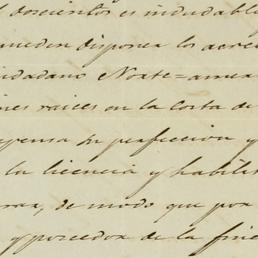 doscientos es indudable
pueden disponer los acree
ciudadano Norte=amer
nes raices en la Costa de
prensa su perfeccion y
la licencia y habili
rar, de modo que por
y poseedor de la fin